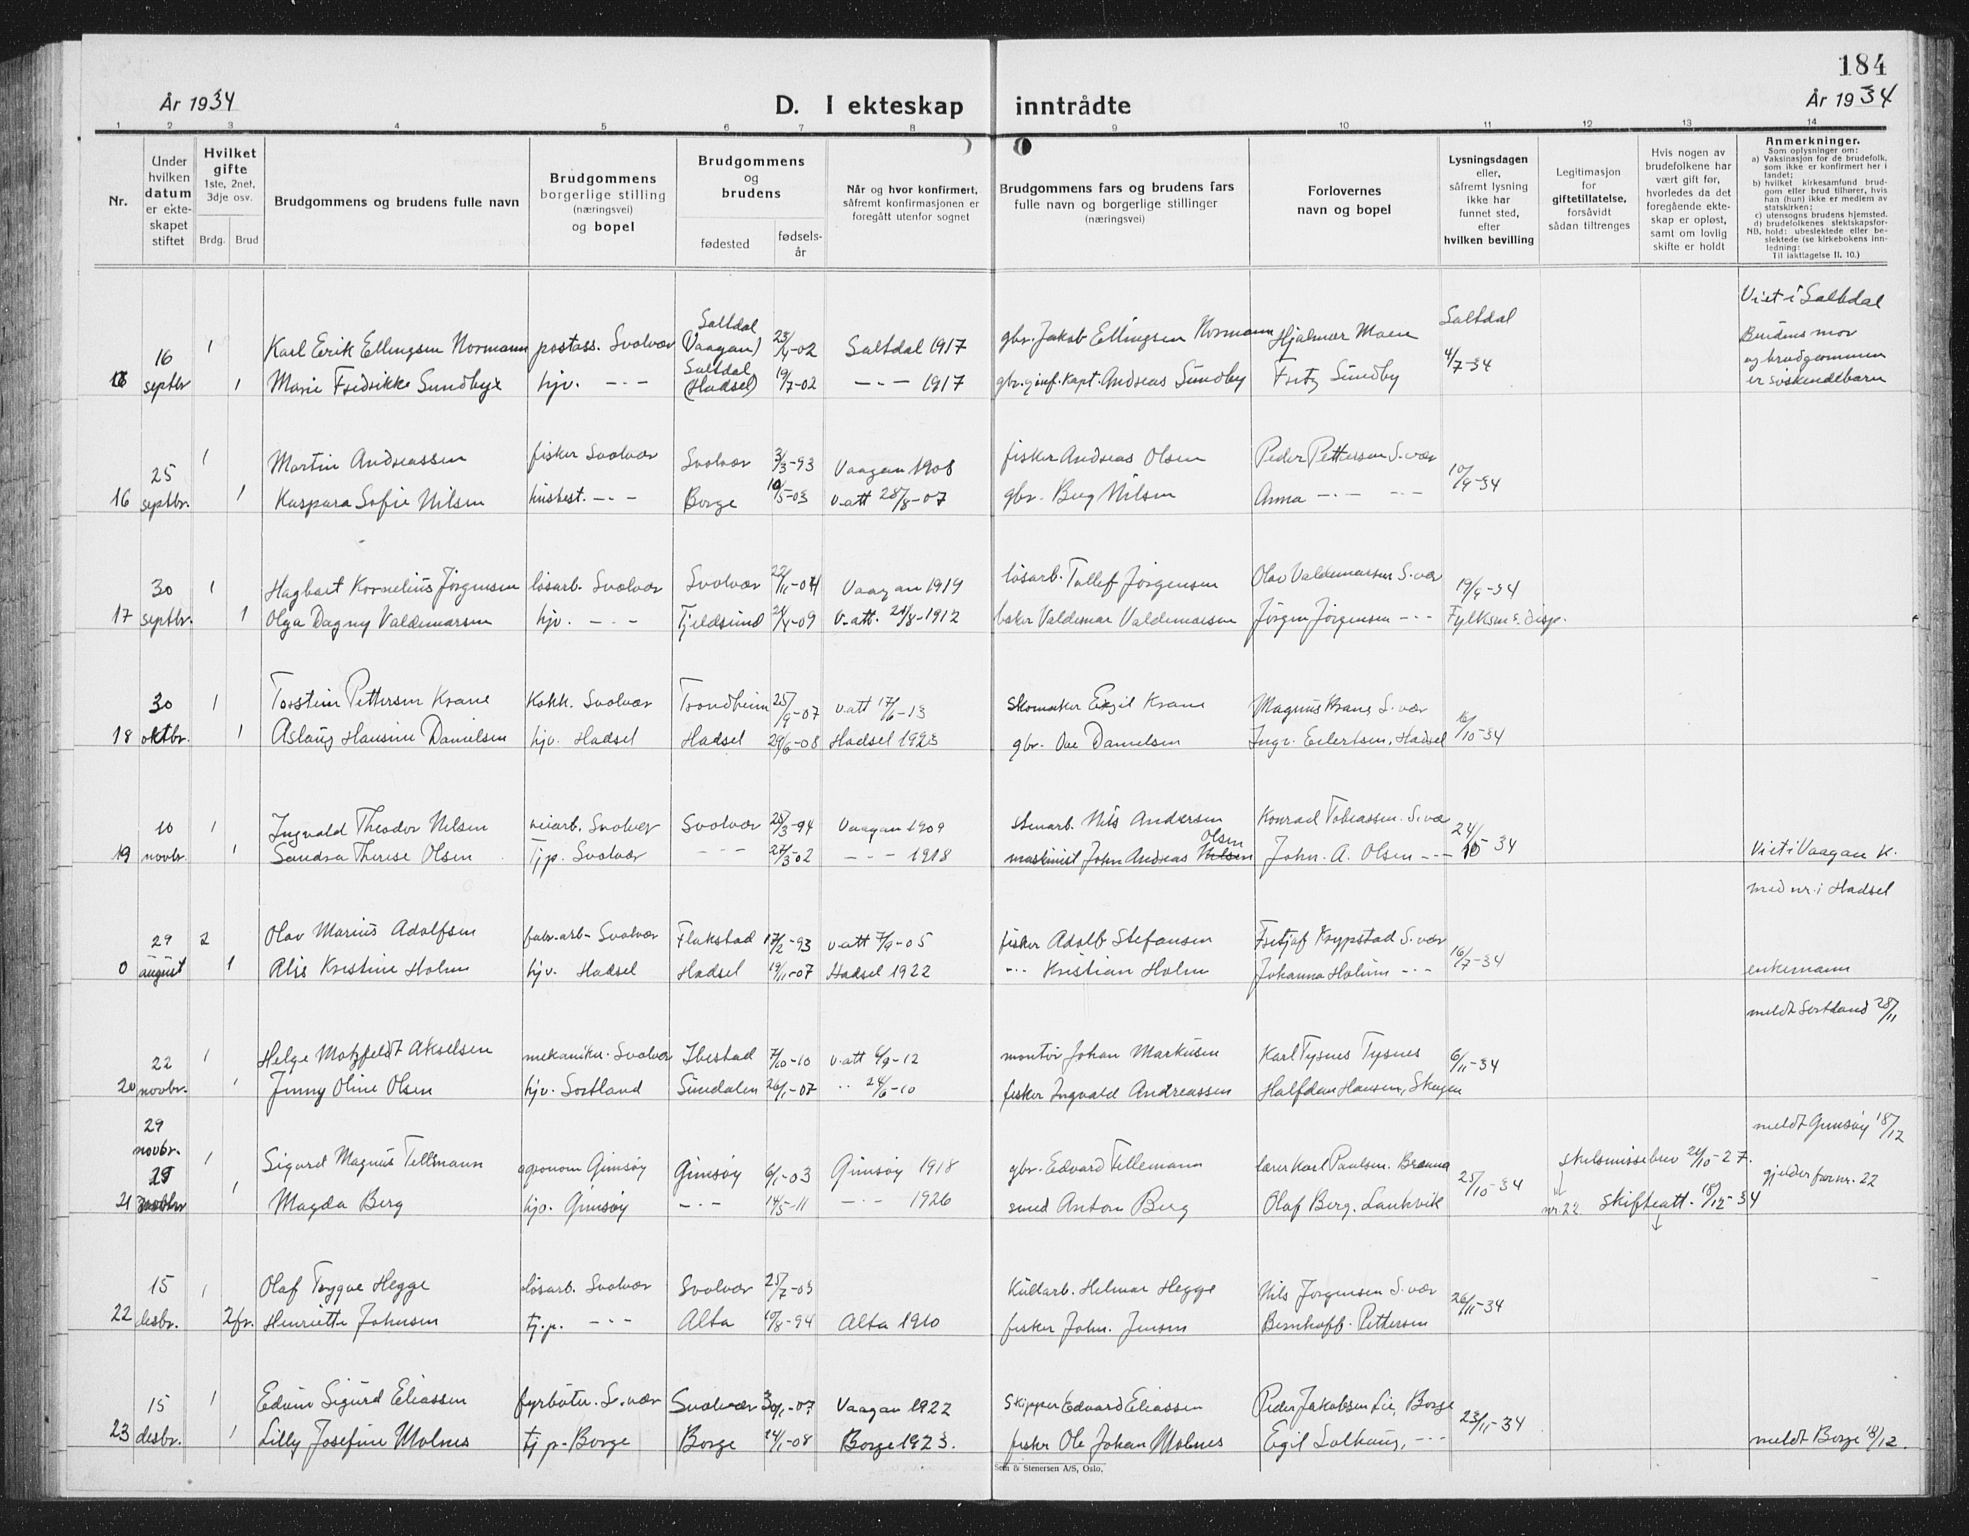 184
År 1934
D. I ekteskap inntrådte
År 1934
1 2 3 4 5 6 7 8 9 10 11 12 13 14
Nr.
Under hvilken datum er ekteskapet stiftet
Hvilket gifte 1ste, 2net, 3dje osv.
Brdg. Brud
Brudgommens og brudens fulle navn
Brudgommens borgerlige stilling (næringsvei) og bopel
Brudgommens og brudens
fødested
fødselsår
Når og hvor konfirmert, såfremt konfirmasjonen er foregått utenfor sognet
Brudgommens fars og brudens fars fulle navn og borgerlige stillinger (næringsvei)
Forlovernes navn og bopel
Lysningsdagen eller, såfremt lysning ikke har funnet sted, efter hvilken bevilling
Legitimasjon for giftetillatelse, forsåvidt sådan tiltrenges
Hvis nogen av brudefolkene har vært gift før, hvorledes da det foregående ekteskap er opløst, samt om lovlig skifte er holdt
Anmerkninger.
Som oplysninger om:
a) Vaksinasjon for de brudefolk, som ikke er konfirmert her i landet;
b) hvilket kirkesamfund brudgom eller brud tilhører, hvis han (hun) ikke er medlem av statskirken;
c) utensogns brudens hjemsted.
d) brudefolkenes slektskapsforhold: ubeslektede eller beslektede (se kirkebokens innledning:
NB.
Til iakttagelse II. 10.)
Viet i Saltdal
16 1 Karl Erik Ellingsen Normann postass. Svolvær Saltdal (Vaagan) 23/4-02 Saltdal 1917 gbr. Jakob Ellingsen Normann Hjalmar Moen Saltdal Brudens mor
septbr 1 Marie Fredrikke Sundbye hjv. -·- Saltdal (Hadsel) 19/7-02 -·- 1917 gbr. Andreas Sundby Fritz Sundby 4/7-34 og brudgommen er søskendebarn
25 1 Martin Andreassen fisker Svolvær Svolvær 3/3-93 Vaagan 1908 fisker Andreas Olsen Peder Pettersen S.vær 10/9-34
16 septbr. 1 Kaspara Sofie Nilsen husbest. -·- Borge 10/5-03 v.att 28/8-07 gbr. Berg Nilsen Anna -·- -·-
30 1 Hagbart Kornelius Jörgensen løsarb. Svolvær Svolvær 22/11-04 Vaagan 1919 løsarb. Tollef Jörgensen Olav Valdemarsen S.vær 19/9-34
17 septbr. 1 Olga Dagny Valdemarsen hjv. -·- Tjeldsund 24/8-09 v.att. 24/8-1912 baker Valdemar Valdemarsen Jörgen Jörgensen -·- Fylksm s. disp.
30 1 Torstein Pettersen Krane Kokk. Svolvær Trondheim 25/9-07 v.att 17/6-13 Skomaker Eigil Krane Magnus Krane S.vær 16/10-34
18 oktbr. 1 Aslaug Hansine Danielsen hjv. Hadsel Hadsel 29/6-08 Hadsel 1923 gbr. Ove Danielsen Ingv. Eilertsen, Hadsel
10 1 Ingvald Theodor Nilsen veiarb. Svolvær Svolvær 25/3-94 Vaagan 1909 stenarb. Nils Andersen Konrad Tobiassen. S.vær 24/10-34
19 novbr. 1 Sandra Therese Olsen tj.p. Svolvær -·- 27/3-02 -·- 1918 maskinist John Andreas Nilsen Olsen John. A. Olsen -·- Viet i Vaagan K.
med nr. i Hadsel
29 2 Olav Marius Adolfsen fabr.arb- Svolvær Flakstad 17/2-93 v.att 7/9-05 fisker Adolf Stefansen Fritjof Krypstad S.vær 16/7-34
0 august 1 Alis Kristine Holm hjv. Hadsel Hadsel 19/11-07 Hadsel 1922 -·- Kristian Holm Johanna Holm -·- enkemann
meldt Sortland 28/11
22 1 Helge Motzfeldt Akselsen mekaniker. Svolvær Ibestad 7/10-10 v.att 6/9-12 montør Johan Markusen Karl Tysnes Tysnes 6/11-34
20 novbr. 1 Jenny Oline Olsen hjv. Sortland Sundalen 26/1-07 ·· 24/6-10 fisker Ingvald Andreassen Halfdan Hansen, Skagen
29 novbr. meldt Gimsöy 18/12
29 1 Sigurd Magnus Tellmann agronom Gimsöy Gimsöy 6/1-03 Gimsöy 1918 gbr. Edvard Tellemann lærer Karl Paulsen. Brenna 25/10-34 skilsmissebrev 24/10-27. gjelder for nr. 22
21 novbr 1 Magda Berg hjv. Gimsöy -·- 14/5-11 -·- 1926 smed Anton Berg Olaf Berg. Laukvik nr 22 skifteatt. 15/12-34
15 1 Olaf Trygve Hegge løsarb. Svolvær Svolvær 25/7-03 Kullarb. Helmar Hegge Nils Jörgensen S.vær 26/11-34
22 desbr. 2 fr. Henriette Johnsen tj.p. -·- Alta 10/8-94 Alta 1910 fisker John. Jensen Bernhoff. Pettersen
15 1 Edvin Sigurd Eliassen fyrbøter. S.vær Svolvær 30/1-07 Vaagan 1922 Skipper Edvard Eliassen Peder Jakobsen Lie, Borge 23/11-34
23 desbr. 1 Lilly Josefine Molnes tj.p- Borge Borge 24/1-08 Borge 1923. fisker Ole Johan Molnes Egil Solhaug, -·- meldt Borge 18/12.
Sem & Stenersen A/S, Oslo,